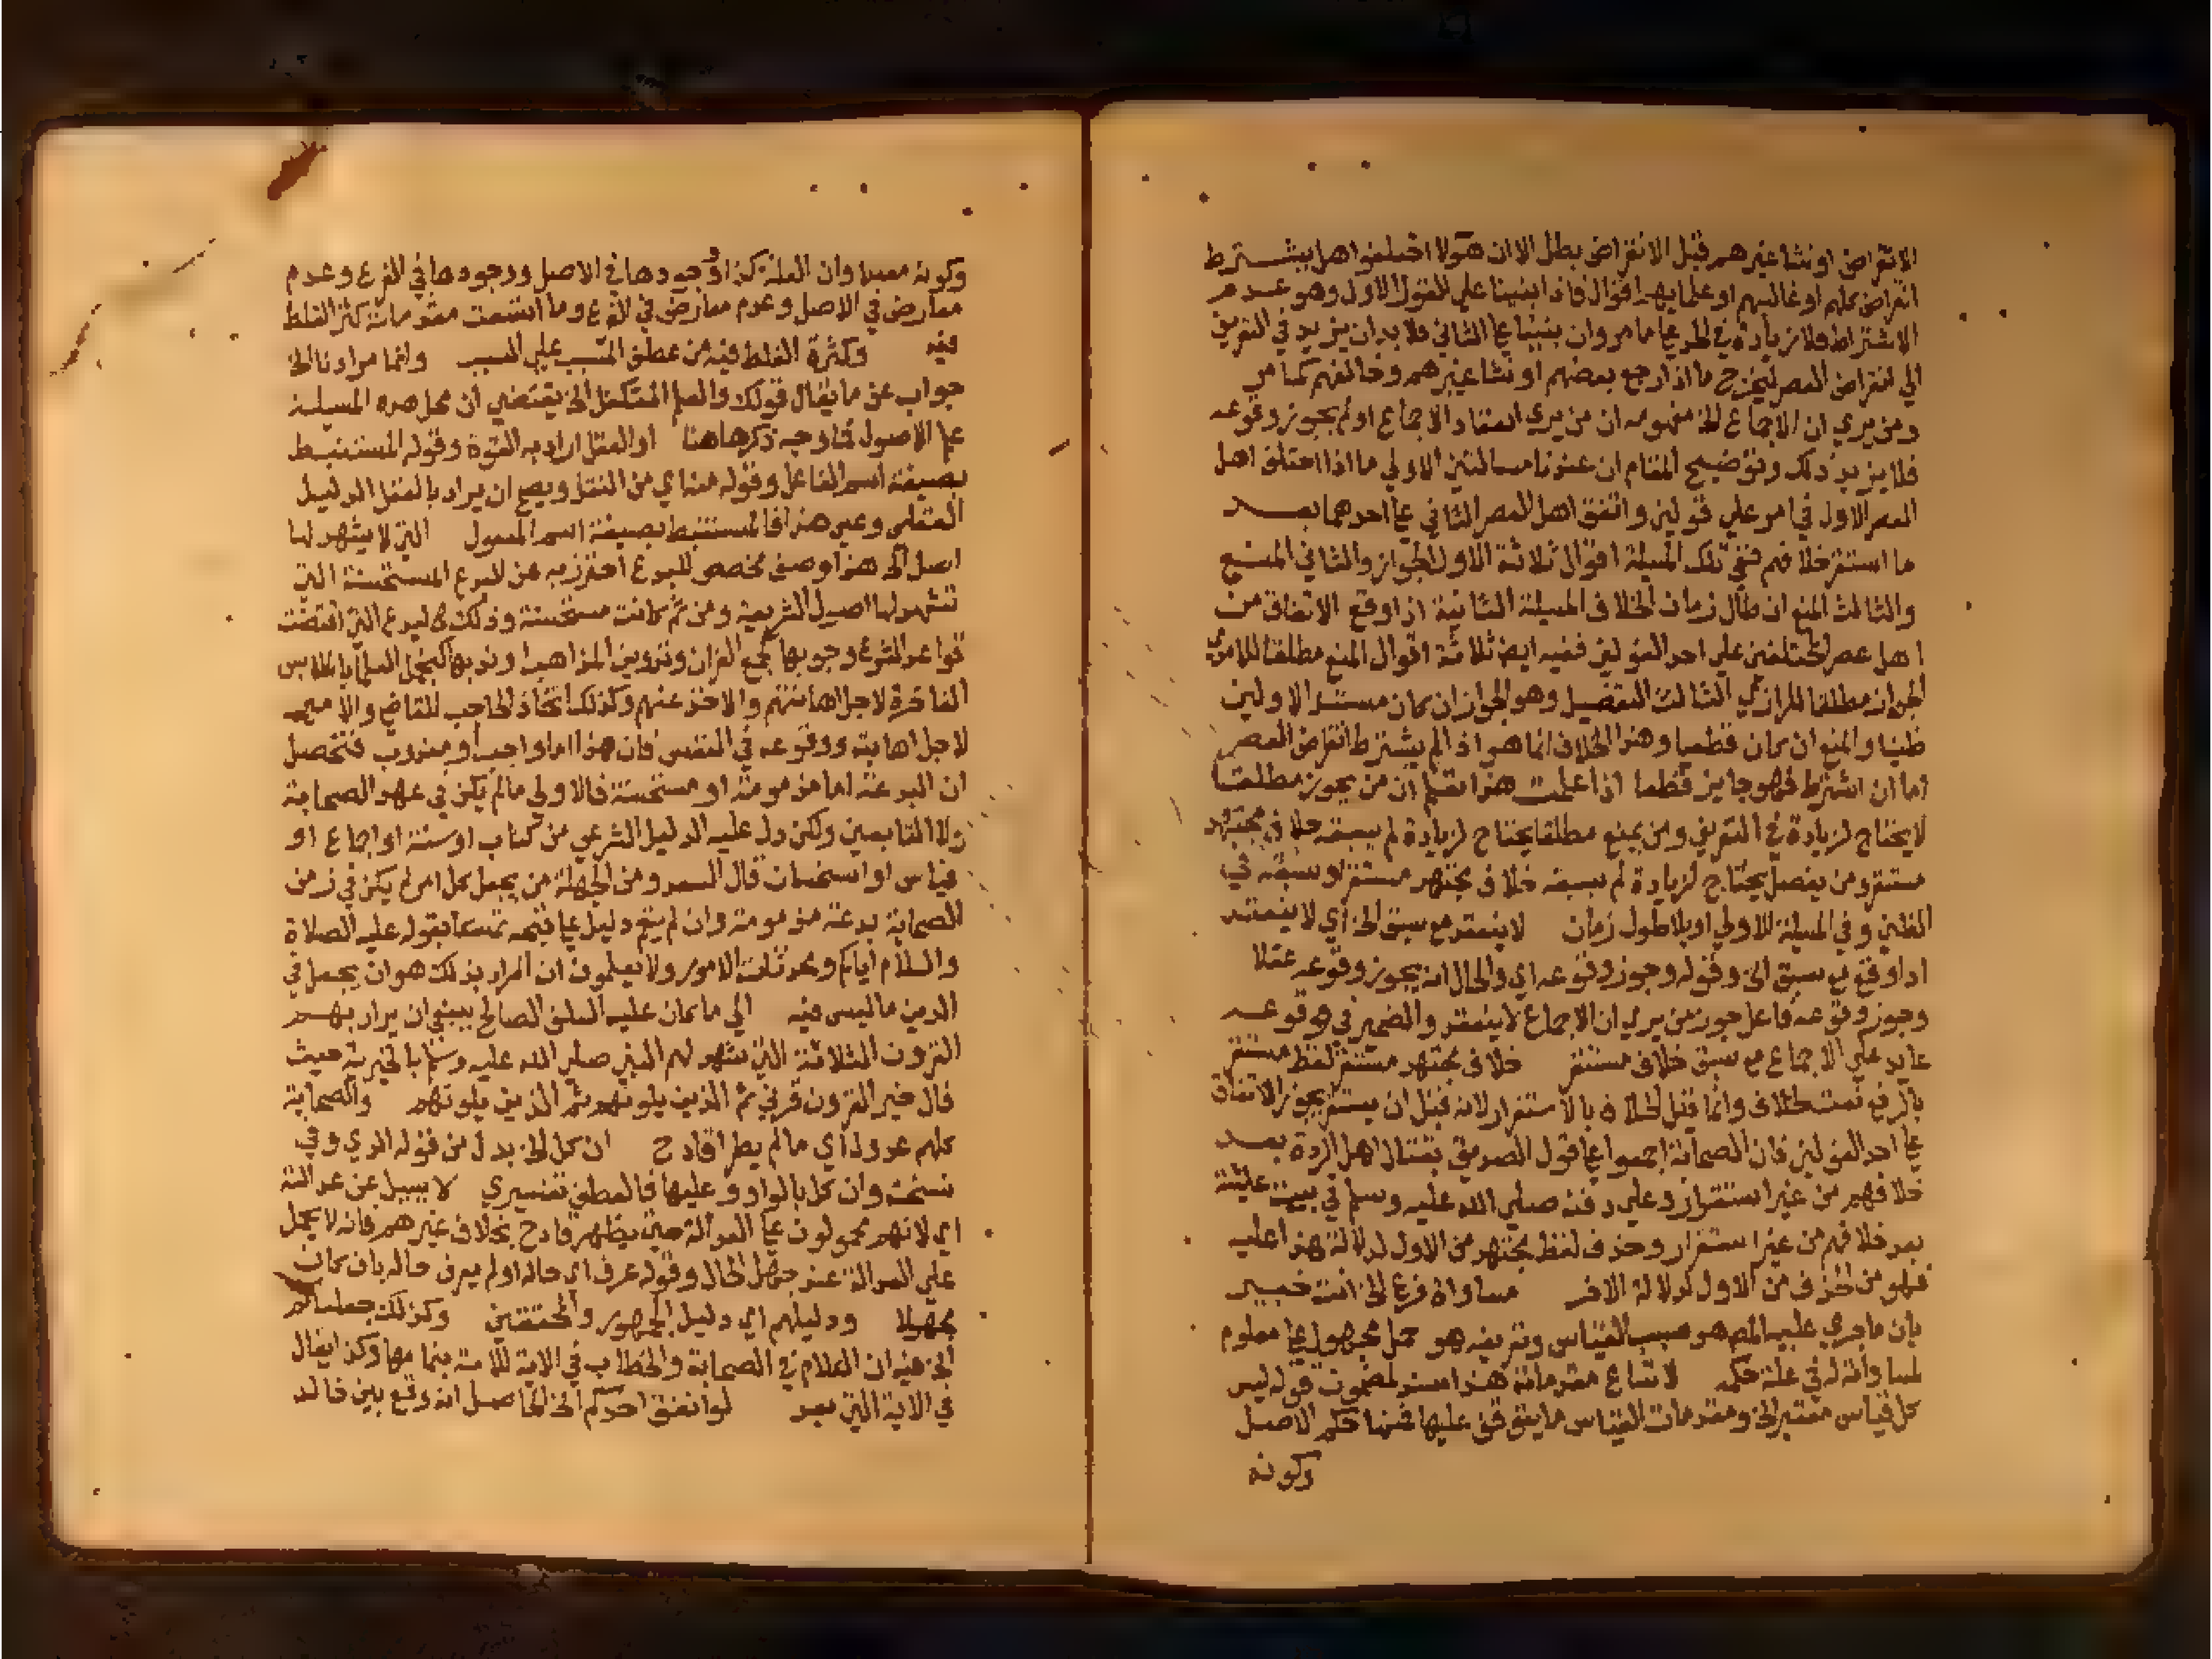 الانقراض او نشا غيرهم قبل الانقراض بطل الا ان هولا اختلفوا هل يشترط
انقراض كلهم او غالبهم او علمايهم اقوال فاذا بنينا علي القول الاول وهو عدم
الاشتراط فلا زيادة في المدعي ما مر وان بنينا علي الثاني فلا بد ان يزيد في التعريف
الي انقراض العصر ليخرج ما اذا رجع بعضهم او نشا غيرهم وخالفهم كما مر
ومن يري ان الاجماع الخ مفهومه ان من يري انعقاد الاجماع او لم يجوز وقوعه
فلا يزيد ذلك وتوضيح المقام ان عندنا مسالتين الاولي ما اذا اختلف اهل
العصر الاول في امر علي قولين واتفق اهل العصر الثاني علي احدهما بعد
ما استقر خلافهم ففي تلك المسيلة اقوال ثلاثة الاول الجواز والثاني المنع
والثالث المنع ان طال زمان الخلاف المسيلة الثانية اذا وقع الاتفاق من
اهل عصر المختلفين علي احد القولين ففيه ايضا ثلاثة اقوال المنع مطلقا للامدي
الجواز مطلقا للرازي الثالث التفصيل وهو الجواز ان كان مستند الاولين
ظنيا والمنع ان كان قطعيا وهذا الخلاف انما هو اذا لم يشترط انقراض العصر
اما ان اشترط فهو جايز قطعا اذا علمت هذا تعلم ان من يجوز مطلقا
لا يحتاج لزيادة في التعريف ومن يمنع مطلقا يحتاج لزيادة لم يسبقه خلاف مجتهد
مستقر ومن يفصل يحتاج لزيادة لم يسبقه خلاف مجتهد مستقر او سبقه في
الظني وفي المسيلة الاولي او بلا طول زمان لا ينعقد مع سبق الخ اي لا ينعقد
اذا وقع مع سبق الخ وقوله وجوز وقوعه اي والحال انه يجوز وقوعه عقلا
وجوز وقوعه فاعل جوز من يري ان الاجماع لا ينعقد والضمير في وقوعه
عايد علي الاجماع مع سبق خلاف مستقر خلاف مجتهد مستقر لفظ مستقر
بالرفع نعت لخلاف وانما قيد الخلاف بالاستقرار لانه قبل ان يستقر يجوز الاتفاق
علي احد القولين فان الصحابة اجمعوا علي قول الصديق بقتال اهل الردة بعد
خلافهم من غير استقرار وعلي دفنه صلي الله عليه وسلم في بيت عايشة
بعد خلافهم من غير استقرار وحذف لفظ مجتهد من الاول لدلالة هذا عليه
فهو من الحذف من الاول لدلالة الاخر مساواة فرع الخ انت خبير
بان ما جري عليه المص هو سبب القياس وتعريفه هو حمل مجهول علي معلوم
لمساواته له في علة حكمه لاتساع مقدماته هذا مستند لمضمون قوله ليس
كل قياس معتبر الخ ومقدمات القياس ما يتوقف عليها فمنها حكم الاصل
وكونه
وكونه معللا وان العلة كذا ووجودها في الاصل ووجودها في الفرع وعدم
معارض في الاصل وعدم معارض في الفرع وما اتسعت مقدماته كثر الغلط
فيه وكثرة الغلط فيه من عطف المسبب علي السبب وانما مرادنا الخ
جواب عن ما يقال قولك والعلم المتكفل الخ يقتضي ان محل هذه المسيلة
علم الاصول فما وجه ذكرها هنا او العقل اراد به القوة وقوله المستنبط
بصيغة اسم الفاعل وقوله منه اي من النقل ويصح ان يراد بالعقل الدليل
العقلي وعلي هذا فالمستنبط بصيغة اسم المفعول التي لا يشهد لها
اصل الخ هذا وصف مخصص للبدع احترز به عن البدع المستحسنة التي
تشهد لها اصول الشريعة ومن ثم كانت مستحسنة وذلك كالبدع التي اقتضت
قواعد الشرع وجوبها كجمع القران وتدوين المذاهب او ندبها كتجمل العلما بالملابس
الفاخرة لاجل اهابتهم والاخذ عنهم وكذلك اتخاذ الحاجب للقاضي والامير
لاجل اهابته ووقوعه في النفس فان هذا اما واجب او مندوب فتحصل
ان البدعة اما مذمومة او مستحسنة فالاولي ما لم يكن في عهد الصحابة
ولا التابعين ولكن دل عليه الدليل الشرعي من كتاب او سنة او اجماع او
قياس او استحسان قال السعد ومن الجهلة من يجعل كل امر لم يكن في زمن
الصحابة بدعة مذمومة وان لم يقم دليل علي قبحه تمسكا بقوله عليه الصلاة
والسلام اياكم ومحدثات الامور ولا يعلمون ان المراد بذلك هو ان يجعل في
الدين ما ليس فيه الي ما كان عليه السلف الصالح ينبغي ان يراد بهم
القرون الثلاثة التي شهد لهم النبي صلي الله عليه وسلم بالخيرية حيث
قال خير القرون قرني ثم الذين يلونهم ثم الذين يلونهم والصحابة
كلهم عدول اي ما لم يطرا قادح ان كل الخ بدل من قوله الذي وفي
نسخة وان كل بالواو وعليها فالعطف تفسيري لا يسيل عن عدالته
اي لانهم محمولون علي العدالة حتي يظهر قادح بخلاف غيرهم فانه لا يحمل
علي العدالة عند جهل الحال وقوله عرف اي حاله او لم يعرف حاله بان كان
مجهولا ودليلهم اي دليل الجمهور والمحققين وكذلك جعلناكم
الخ فيه ان الكلام في الصحابة والخطاب في الاية للامة بتمامها وكذا يقال
في الاية التي بعد لو انفق احدكم الخ الحاصل انه وقع بين خالد